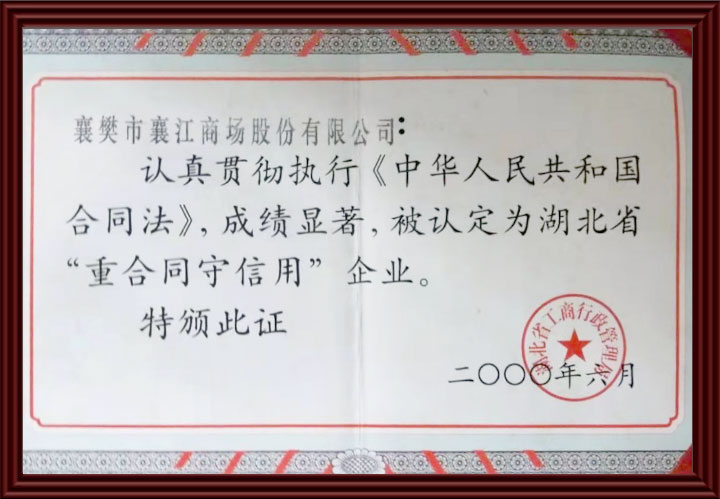 襄樊市襄江商场股份有限公司：
认真贯彻执行《中华人民共和国
合同法》，成绩显著，被认定为湖北省
“重合同守信用”企业。
特颁此证
湖北省工商行政管理局
二〇〇〇年六月